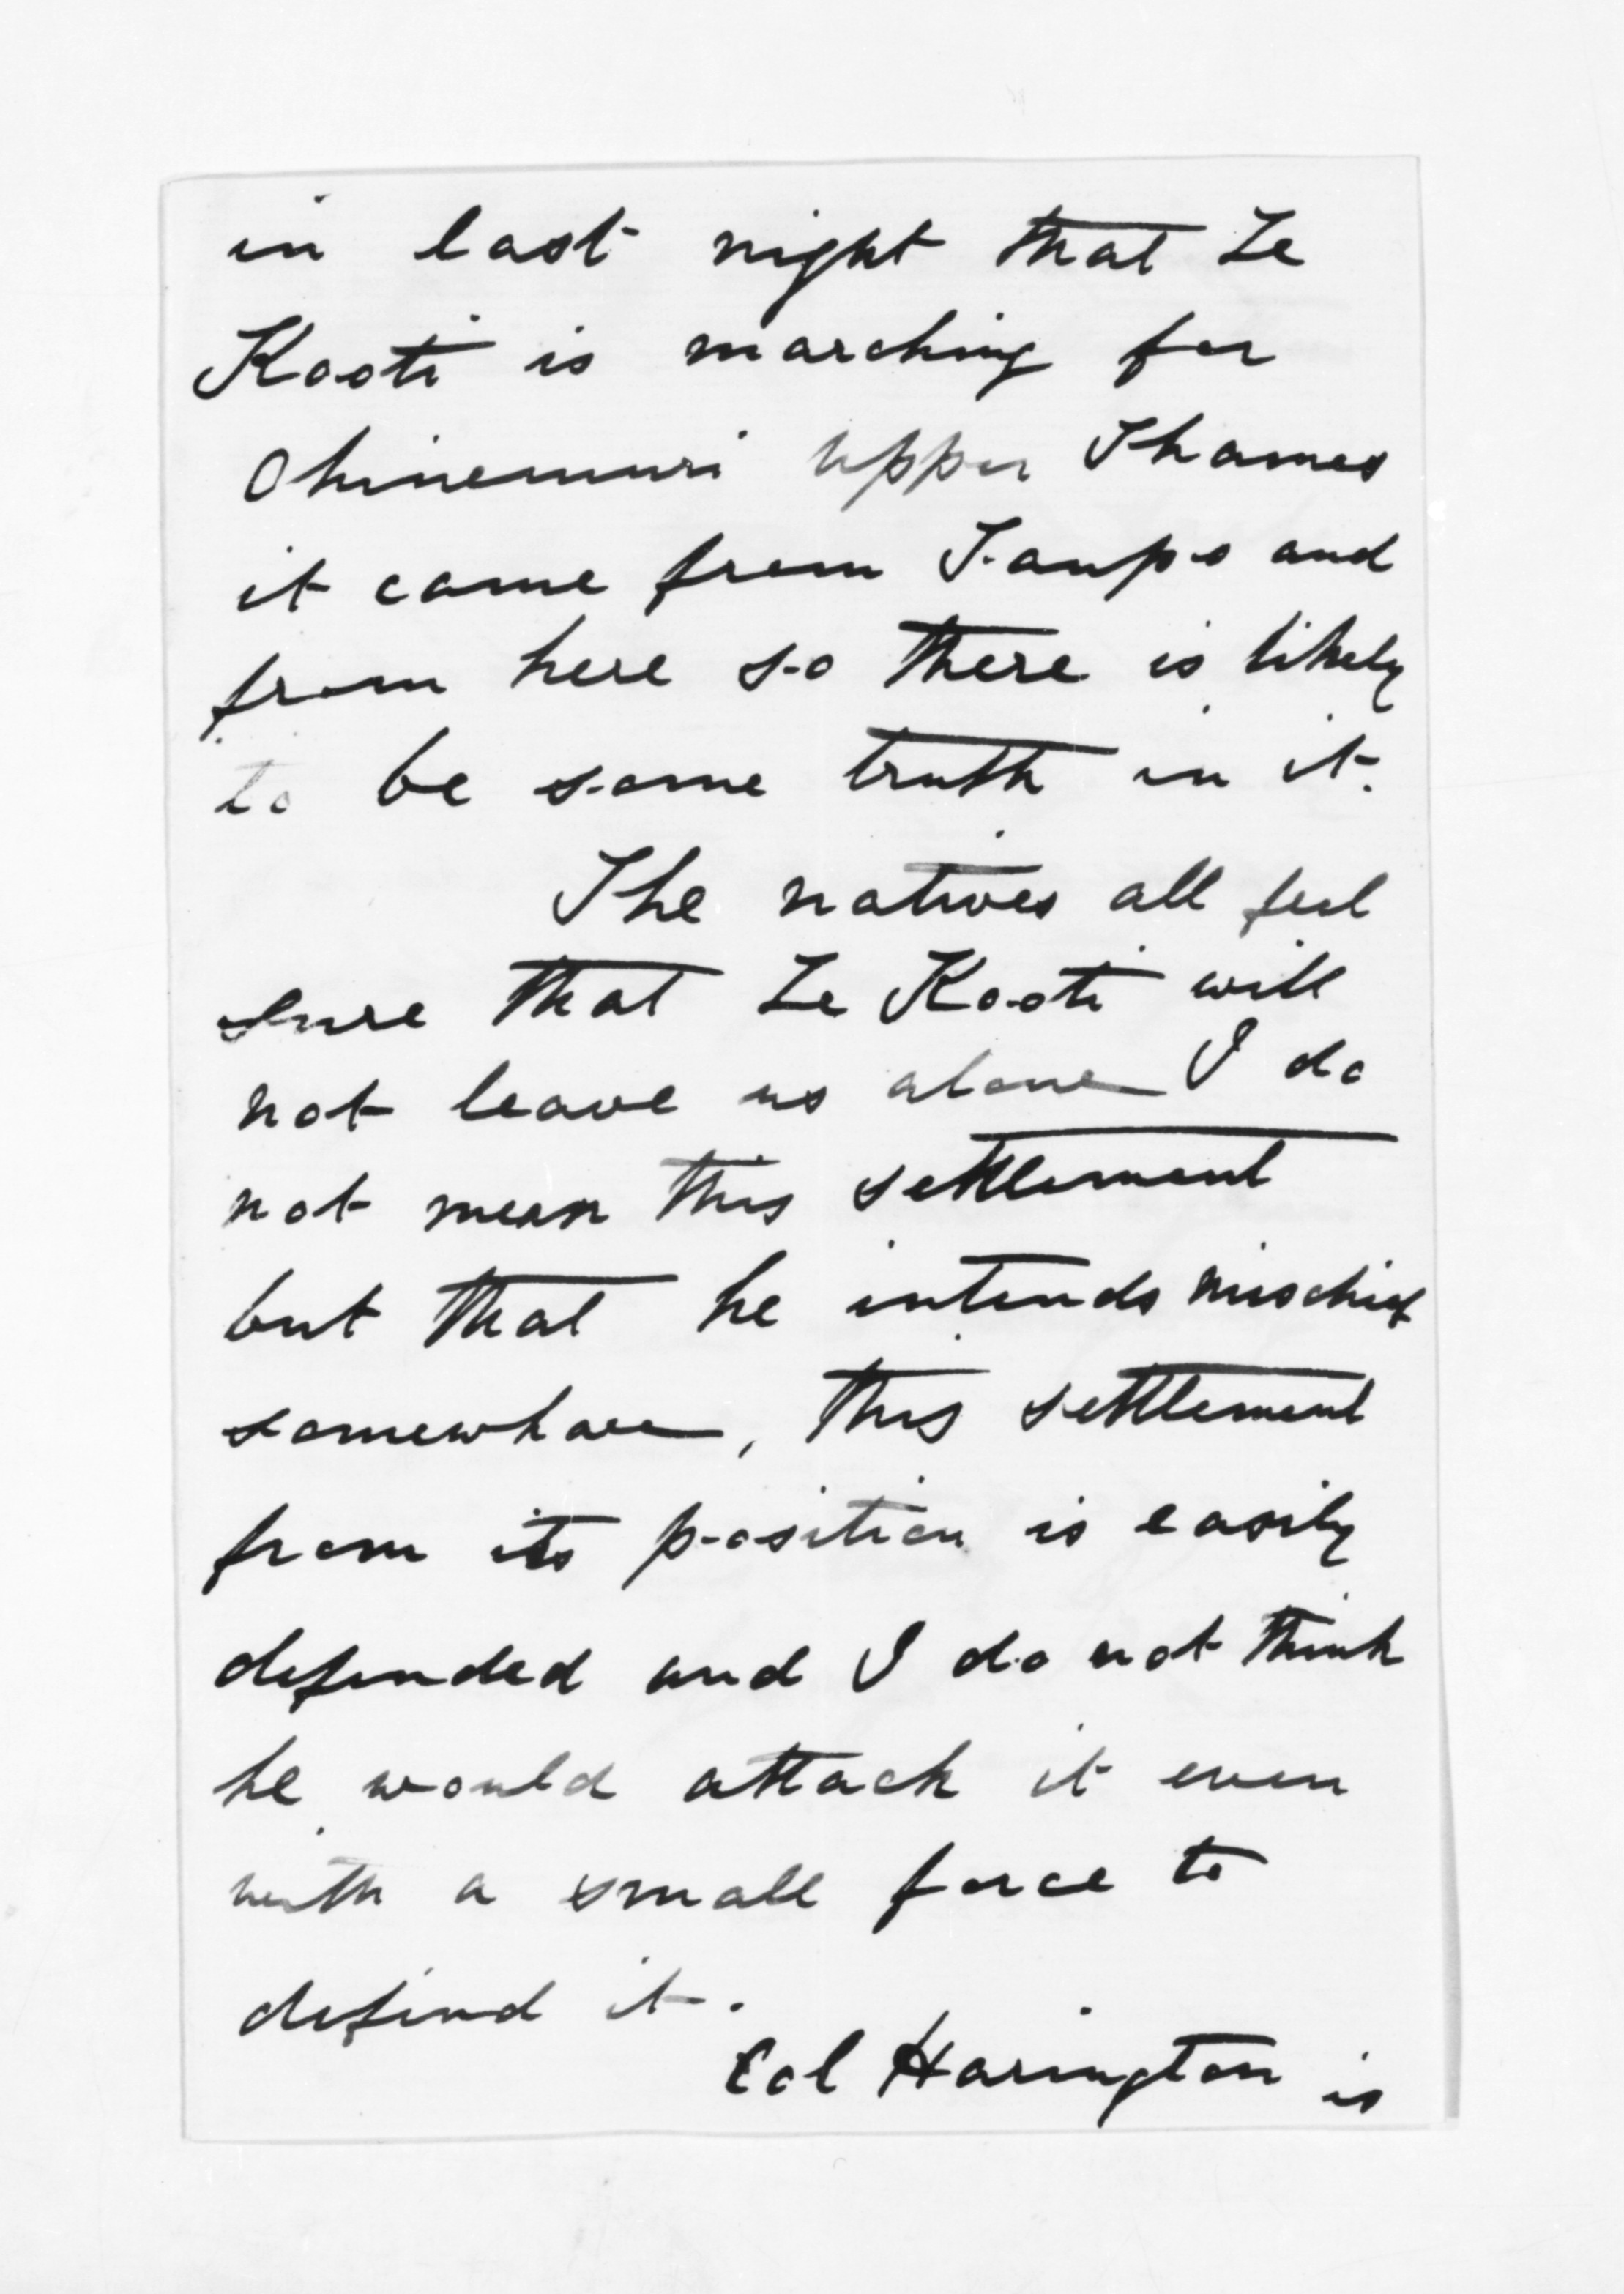 in last night that Te
Kooti is marching for
Ohinemuri upper Thames
it came from Taupo and
from here so there is likely
to be some truth in it.
The natives all feel
sure that Te Kooti will
not leave us alone I do
not mean this settlement
but that he intends mischief
somewhare, this settlement
from its position is easily
defended and I do not think
he would attack it even
with a small force to
defend it.
Col Harington is